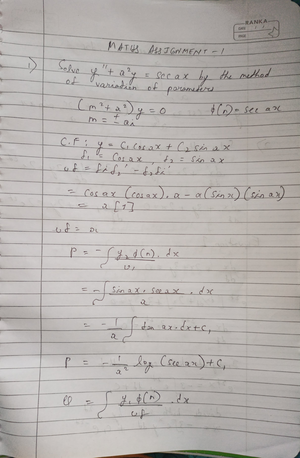 RANKA
MATHS ASSIGNMENT - 1
1) Solve y" + a²y = sec ax by the method
of variation of parameters
(m² + a²) y = 0   φ(n) = sec ax
m = ± ai
C.F: y = C₁ cos ax + C₂ sin ax
f₁ = cos ax, f₂ = sin ax
wf = f₁ f₂' - f₂ f₁'
= cos ax (cos ax) . a - a (sin x) (sin ax)
= a [1]
wf = a
P = - ∫ y₂ φ(n) . dx / wf
= - ∫ sin ax . sec ax . dx / a
= - 1/a ∫ tan ax . dx + C₁
P = - 1/a² log (sec ax) + C₁
Q = ∫ y₁ φ(n) . dx / wf